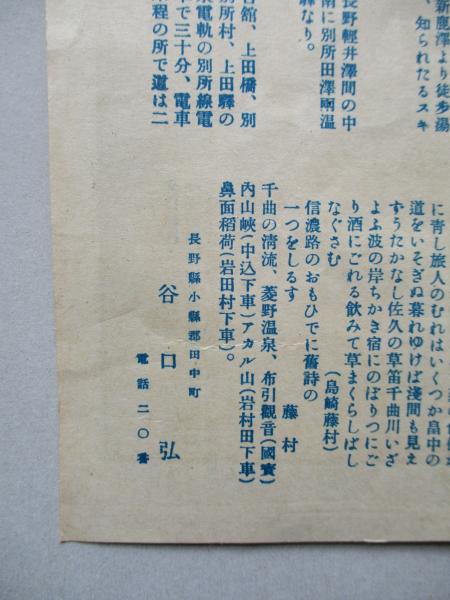 新鹿澤より徒歩湯
、知られたるスキ
長野輕井澤間の中
南に別所田澤兩温
驛なり。
館、上田橋、別
別所村、上田驛の
電軌の別所線電
車で三十分、電車
程の所で道は二
に靑し旅人のむれはいくつか畠中の
道をいそぎぬ暮れゆけば淺間も見え
すうたかなし佐久の草笛千曲川いざ
よふ波の岸ちかき宿にのぼりつにご
り酒にごれる飮みて草まくらしばし
なぐさむ
(島崎藤村)
信濃路のおもひでに舊詩の
一つをしるす
藤村
千曲の淸流、菱野温泉、布引觀音(國寳)
內山峽(中込下車)アカル山(岩村田下車)
鼻面稻荷(岩田村下車)。
長野縣小縣郡田中町
谷口弘
電話二〇番